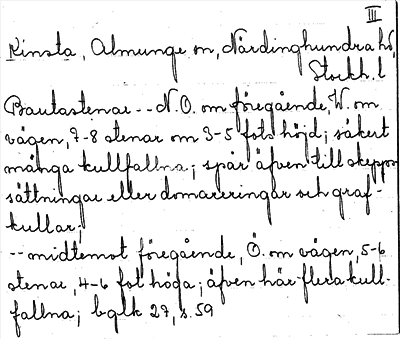 III
Kinsta, Almunge sn, Närdinghundra hd,
Stockh. l
Bautastenar -- N.O. om föregående, W. om
vägen, 7-8 stenar om 3-5 fots höjd; säkert
många kullfallna; spår äfven till skepps
sättningar eller domareringar och graf-
kullar;
-- midtemot föregående, Ö. om vägen, 5-6
stenar, 4-6 fot höga; äfven här flera kull-
fallna; bglk 27, s. 59